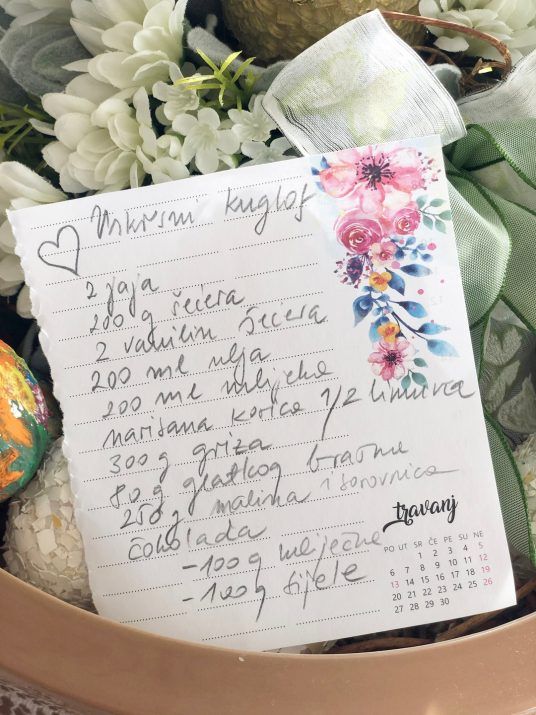 Uskrsni kuglof
2 jaja
200 g šećera
2 vanilin šećera
200 ml ulja
200 ml mlijeka
narisana korica 1/2 limuna
300 g griza
80 g glatkog brašna
250 g malina i borovnica
čokolada
- 100 g mliječne
- 100 g bijele
travanj
PO UT SR ČE PE SU NE
1 2 3 4 5
6 7 8 9 10 11 12
13 14 15 16 17 18 19
20 21 22 23 24 25 26
27 28 29 30